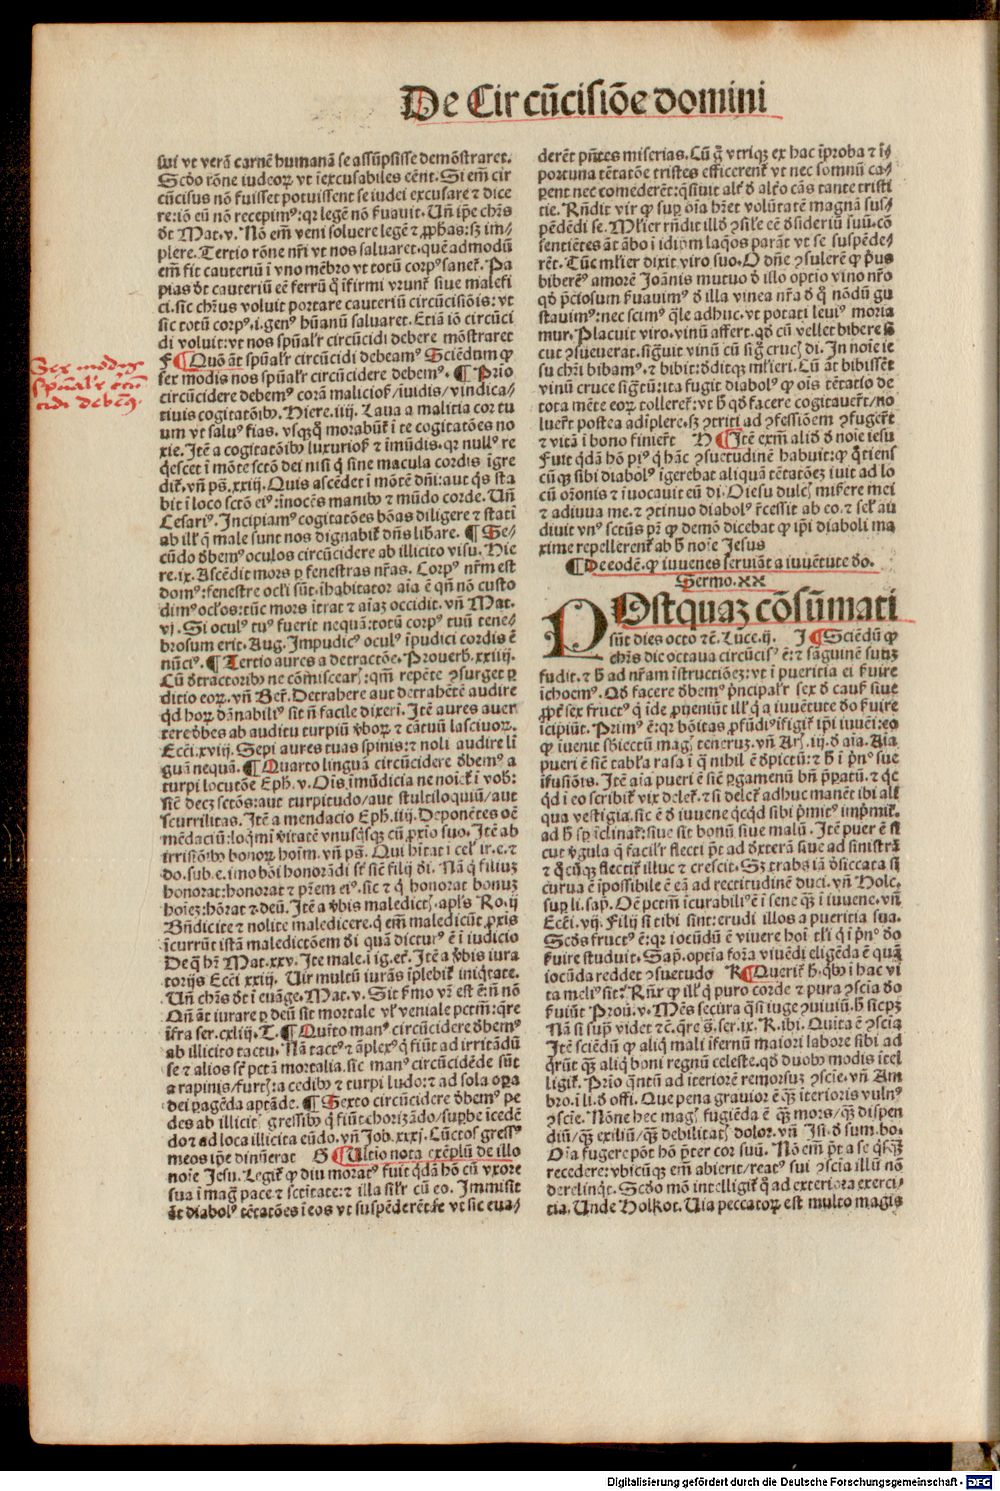 De Circũcisiõe domini
sui vt verã carnẽ humanã se assũpsisse demõstraret.
Scďo rõne iudeoꝝ vt ĩexcusabiles eẽnt. Si eñi cir
cũcisus nõ fuisset potuissent se iudei excusare ⁊ dice
re: iõ eũ nõ recepimꝰ: qꝛ legẽ nõ ẜuauit. Uñ ip̃e chr̃s
ďt Mat. v. Nõ em̃ veni soluere legẽ ⁊ ꝓphas: sꝫ im⸗
plere. Tertio rõne nr̃i vt nos saluaret. quẽadmodũ
em̃ fit cauteriũ ĩ vno mẽbro vt totũ corpꝰ sanet̃. Pa
pias ďt cauteriũ eẽ ferrũ q̃ ĩfirmi vrunt̃ siue malefi
ci. sic chr̃us voluit portare cauteriũ circũcisiõis: vt
sic totũ corpꝰ .i. genꝰ hũanũ saluaret. Etiã iõ circũci
di voluit: vt nos spũal'r circũcidi debere mõstraret
F ¶ Quõ ãt spũal'r circũcidi debeamꝰ Sciẽdum ꝙ
sex modis nos spũal'r circũcidere debemꝰ. ¶ Prio
circũcidere debemꝰ corã maliciosꝭ/ iuidis/ vindica⸗
tiuis cogitatõibꝰ. Hiere. iiij. Laua a malitia cor tu
um vt saluꝰ fias. vsqꝫq̃ morabũt̃ ĩ te cogitatões no
xie. Itẽ a cogitatõibꝰ luxuriosꝭ ⁊ ĩmũdis. qꝛ nullꝰ re
q̃escet ĩ mõte sctõ dei nisi q̃ sine macula cordis ĩgre
dit̃. vñ ps̃. xxiij. Quis ascẽdet ĩ mõtẽ dñi: aut q̃s sta
bit ĩ loco sctõ eiꝰ: ĩnocẽs manibꝰ ⁊ mũdo corde. Uñ
Cesariꝰ. Incipiamꝰ cogitatões bõas diligere ⁊ stati
ab ill' q̃ male sunt nos dignabit̃ dñs lib̃are. ¶ Se⸗
cũdo ďbemꝰ oculos circũcidere ab illicito visu. Hie
re. ix. Ascẽdit mors ꝑ fenestras nr̃as. Corpꝰ nr̃m est
domꝰ: fenestre ocl'i sũt. ĩhabitator aĩa ẽ qñ nõ custo
dimꝰ ocl'os: tũc mors ĩtrat ⁊ aĩaꝫ occidit. vñ Mat.
vj. Si oculꝰ tuꝰ fuerit nequã: totũ corpꝰ tuũ tene⸗
brosum erit. Aug. Impudicꝰ oculꝰ ĩpudici cordis ẽ
nũciꝰ. ¶ Tertio aures a detractõe. Prouerb. xxiiij.
Cũ ďtractoribꝰ ne cõmisceariꝭ: qm̃ repẽte ꝯsurget ꝑ
ditio eoꝝ. vñ Ber̃. Detrahere aut detrahẽtẽ audire
q̃d hoꝝ dãnabiliꝰ sit ñ facile dixeri. Itẽ aures auer
tere ďbes ab auditu turpiũ v̓boꝝ ⁊ cãtuũ lasciuoꝝ.
Ecc̃i. xviij. Sepi aures tuas spinis: ⁊ noli audire li
guã nequã. ¶ Quarto linguã circũcidere ďbemꝰ a
turpi locutõe Eph. v. Oĩs ĩmũdicia ne noiet̃ ĩ vob̃:
sic̃ decꝫ sctõs: aut turpitudo/ aut stultiloquiũ/ aut
scurrilitas. Itẽ a mendacio Eph. iiij. Deponẽtes oẽ
mẽdaciũ: loq̃mi v̓itatẽ vnusq̃sqꝫ cũ ꝓxĩo suo. Itẽ ab
irrisiõibꝰ bonoꝝ hoĩm. vñ ps̃. Qui hitat ĩ cel' ir. e. ⁊
do. sub. e. imo bõi honorãdi st̃ sic̃ filij ďi. Nã q̃ filiuꝫ
honorat: honorat ⁊ pr̃em eiꝰ. sic ⁊ q̃ honorat bonuꝫ
hoĩeꝫ: hõrat ⁊ deũ. Itẽ a v̓bis maledictꝭ. apl's Ro. ij
Bñdicite ⁊ nolite maledicere. q̃ em̃ maledicũt ꝓxĩs
ĩcurrũt istã maledictõem ďi quã dicturꝰ ẽ ĩ iudicio
De q̃ hr̃ Mat. xxv. Ite male. ĩ ig. et̃. Itẽ a v̓bis iura
torijs Ecc̃i xxiij. Uir multũ iurãs ĩplebit̃ iniq̃tate.
Uñ chr̃s ďt ĩ euãge. Mat. v. Sit ẜmo vr̃ est ẽ: ñ nõ
Qñ ãt iurare ꝑ deũ sit mortale vl' veniale pctm̃: q̃re
ĩfra ser. cxliij. T. ¶ Quĩto manꝰ circũcidere ďbemꝰ
ab illicito tactu. Nã tactꝰ ⁊ ãplexꝰ q̃ fiũt ad irritãdũ
se ⁊ alios st̃ pctã mortalia. sic manꝰ circũcidẽde sũt
a rapinis/ furtꝭ: a cedibꝰ ⁊ turpi ludo: ⁊ ad sola oꝑa
dei ꝑagẽda aptãde. ¶ Sexto circũcidere ďbemꝰ pe
des ab illicitꝭ gressibꝰ q̃ fiũt chorizãdo/ suꝑbe icedẽ
do ⁊ ad loca illicita eũdo. vñ Job. xxxj. Cũctos gressꝰ
meos ip̃e dinũerat G ¶ Ultĩo nota exẽplũ de illo
noĩe Jesu. Legit̃ ꝙ diu moratꝰ fuit q̃dã hõ cũ vxore
sua ĩ mag̃ pace ⁊ sctitate: ⁊ illa sil'r cũ eo. Immisit
ãt diabolꝰ tẽtatões ĩ eos vt suspẽderẽt se vt sic eua⸗
derẽt pñtes miserias. Cũ g̃ vtriqꝫ ex hac ĩproba ⁊ ĩ⸗
portuna tẽtatõe tristes efficerent̃ vt nec somnũ ca⸗
perent nec comederẽt: q̃siuit alt̃ ď alt̃o cãs tante tristi
tie. Rñdit vir ꝙ suꝑ oĩa hr̃et volũtatẽ magnã sus⸗
pẽdẽdi se. Ml'ier rñdit illď ꝯsil'e eẽ ďsideriũ suũ. cõ
sentiẽtes ãt ãbo ĩ idip̃m laq̃os parãt vt se suspẽde⸗
rẽt. Tũc ml'ier dixit viro suo. O dñe ꝯsulerẽ ꝙ p̃us
biberẽꝰ amorẽ Joãnis mutuo ď illo optĩo vino nr̃o
qď p̃ciosum ẜuauimꝰ ď illa vinea nr̃a ď q̃ nõdũ gu
stauimꝰ: nec scimꝰ q̃le adhuc. vt potati leuiꝰ moria
mur. Placuit viro. vinũ affert. qď cũ vellet bibere si⸗
cut ꝯsueuerat. sig̃uit vinũ cũ sig̃ crucꝭ di. In noĩe ie
su chr̃i bibamꝰ. ⁊ bibit: ďditqꝫ ml'ieri. Cũ ãt bibisset
vinũ cruce sig̃tũ: ita fugit diabolꝰ ꝙ oĩs tẽtatio de
tota mẽte eoꝝ tolleret̃: vt h̃ qď facere cogitauer̃t/ no
luer̃t postea adĩplere. sꝫ ꝯtriti ad ꝯfessiõem ꝯfuger̃t
⁊ vitã ĩ bono finier̃t H ¶ Itẽ exm̃ aliď ď noĩe iesu
Fuit q̃dã hõ piꝰ q̃ hãc ꝯsuetudinẽ habuit: ꝙ q̃tiens
cũqꝫ sibi diabolꝰ ĩgerebat aliquã tẽtatõeꝫ iuit ad lo
cũ or̃onis ⁊ ĩuocauit eũ di. O iesu dulcꝭ mis̃ere mei
⁊ adiuua me. ⁊ ꝯtinuo diabolꝰ r̃cessit ab eo. ⁊ sel' au
diuit vnꝰ sctũs pr̃ ꝙ demõ dicebat ꝙ ip̃i diaboli ma
xime repellerent̃ ab h̃ noĩe Jesus
¶ De eodẽ. ꝙ iuuenes seruiãt a iuuẽtute ďo.
Sermo. XX
POstquaꝫ cõsũmati
sũt dies octo ⁊c̃. Luce. ij. I ¶ Sciẽdũ ꝙ
chr̃s die octaua circũcisꝰ ẽ: ⁊ sãguinẽ suũꝫ
fudit. ⁊ h̃ ad nr̃am ĩstructiõeꝫ: vt ĩ pueritia ei ẜuire
ĩchoemꝰ. Qď facere ďbemꝰ p̃ncipal'r sex ď causꝭ siue
ꝓpt̃ sex fructꝰ q̃ ĩde ꝓueniũt ill' q̃ a iuuẽtute ďo ẜuire
ĩcipiũt. Primꝰ ẽ: qꝛ bõitas ꝓfũdiꝰ ĩfigit̃ ip̃i iuuẽi: eo
ꝙ iuenit sb̃iectũ magꝭ teneruꝫ. vñ Ar̃. iij. ď aĩa. Aĩa
pueri ẽ sic̃ tab̃la rasa ĩ q̃ nihil ẽ ďpictũ: ⁊ h̃ ĩ p̃nꝰ sue
ĩfusiõis. Itẽ aĩa pueri ẽ sic̃ ꝑgamenũ bñ p̃ꝑatũ. ⁊ q̃c
q̃d ĩ eo scribit̃ vix delet̃. ⁊ si delet̃ adhuc manẽt ibi ali
qua vestigia. sic ẽ ď iuuene q̃cq̃d sibi p̃mitꝰ imp̃mit̃.
ad h̃ sꝑ ĩclinat̃: siue sit bonũ siue malũ. Itẽ puer ẽ si
cut v̓gula q̃ facil'r flecti p̃t ad ďxterã siue ad sinistrã
⁊ q̃cũqꝫ flectit̃ illuc ⁊ crescit. Sꝫ trabs iã ďsiccata si
curua ẽ ĩpossibile ẽ eã ad rectitudinẽ duci. vñ Holc.
suꝑ li. sap̃. Oẽ pctm̃ ĩcurabiliꝰ ẽ ĩ sene qꝫ ĩ iuuene. vñ
Ecc̃i. vij. Filij si tibi sint: erudi illos a pueritia sua.
Scďs fructꝰ ẽ: qꝛ iocũdũ ẽ viuere hoĩ tl'i q̃ ĩ p̃nꝰ ďo
ẜuire studuit. Sap̃. optĩa forma viuẽdi eligẽda ẽ quã
iocũda reddet ꝯsuetudo K ¶ Querit̃ h̃. qꝰ ĩ hac vi
ta meliꝰ sit. Rñr̃ ꝙ ill' q̃ puro corde ⁊ pura ꝯscĩa ďo
ẜuiũt Prou. v. Mẽs secura q̃si iuge ꝯuiuiũ. h̃ sicpꝫ
Nã si sup̃ videt ⁊c̃. q̃re s̃. ser. ix. K. ibi. Quita ẽ ꝯscĩa
Itẽ sciẽdũ ꝙ aliq̃ mali ĩfernũ maiori labore sibi ad
q̃rũt qꝫ aliq̃ boni regnũ celeste. qď duobꝰ modis ĩtel
ligit̃. Prĩo q̃ntũ ad ĩteriorẽ remorsuꝫ ꝯscĩe. vñ Am
bro. ĩ li. ď offi. Que pena grauior ẽ qꝫ ĩterioris vulnꝰ
ꝯscĩe. Nõne hec magꝭ fugiẽda ẽ qꝫ mors/ qꝫ dispen
diũ/ qꝫ exiliũ/ qꝫ debilitatꝭ dolor. vñ Isi. ď sum. bo.
Oĩa fugere põt hõ p̃ter cor suũ. Nõ em̃ p̃t a se q̃sqꝫ
recedere: vbicũqꝫ em̃ abierit/ reatꝰ sui ꝯscĩa illũ nõ
derelinq̃t. Scďo mõ intelligit̃ q̃ ad exteriora exerci⸗
tia. Unde Holkot. Uia peccatoꝝ est multo magis
Sex modis
spũal'r circũ
cidi debemꝰ
Digitalisierung gefördert durch die Deutsche Forschungsgemeinschaft - DFG